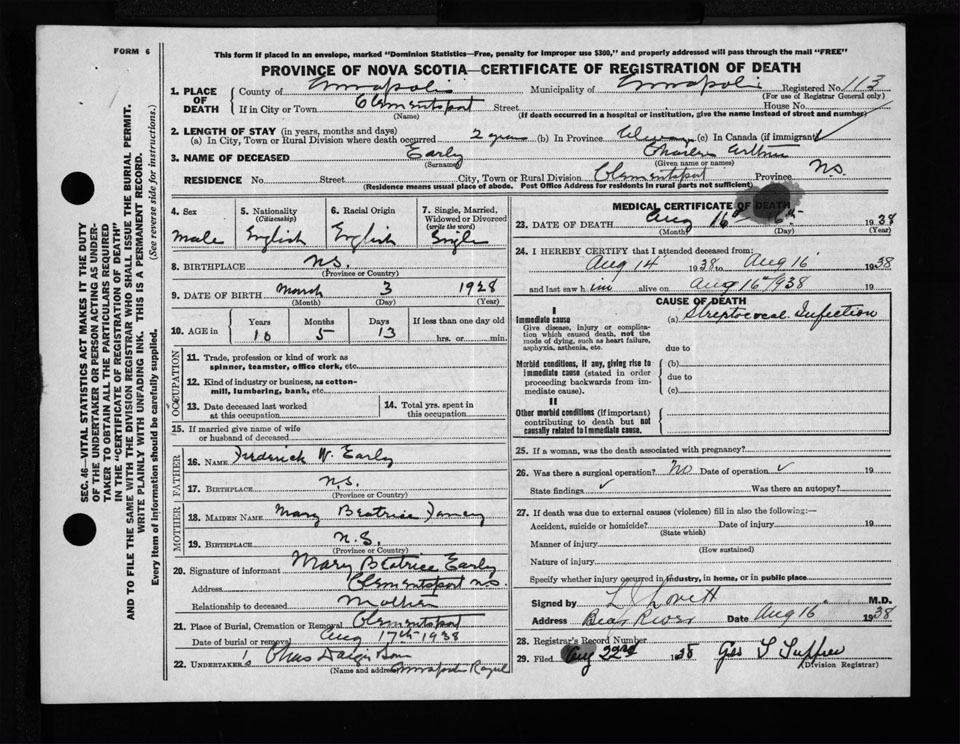 FORM 6
This form if placed in an envelope, marked "Dominion Statistics—Free, penalty for improper use $300," and properly addressed will pass through the mail "FREE"
PROVINCE OF NOVA SCOTIA—CERTIFICATE OF REGISTRATION OF DEATH
SEC. 46—VITAL STATISTICS ACT MAKES IT THE DUTY
OF THE UNDERTAKER OR PERSON ACTING AS UNDER-
TAKER TO OBTAIN ALL THE PARTICULARS REQUIRED
IN THE "CERTIFICATE OF REGISTRATION OF DEATH"
AND TO FILE THE SAME WITH THE DIVISION REGISTRAR WHO SHALL ISSUE THE BURIAL PERMIT.
WRITE PLAINLY WITH UNFADING INK. THIS IS A PERMANENT RECORD.
Every item of information should be carefully supplied. (See reverse side for instructions.)
1. PLACE OF DEATH
County of Annapolis Municipality of Annapolis Registered No. 113
(For use of Registrar General only)
If in City or Town Clementsport Street House No.
(Name) (If death occurred in a hospital or institution, give the name instead of street and number)
2. LENGTH OF STAY (in years, months and days)
(a) In City, Town or Rural Division where death occurred 2 years (b) In Province Always (c) In Canada (if immigrant) ✓
3. NAME OF DECEASED Early Charles Arthur
(Surname) (Given name or names)
RESIDENCE No. Street City, Town or Rural Division Clementsport Province N.S.
(Residence means usual place of abode. Post Office Address for residents in rural parts not sufficient)
4. Sex
Male
5. Nationality
(Citizenship)
English
6. Racial Origin
English
7. Single, Married, Widowed or Divorced
(write the word)
Single
8. BIRTHPLACE N.S.
(Province or Country)
9. DATE OF BIRTH March 3 1928
(Month) (Day) (Year)
10. AGE in Years Months Days If less than one day old
10 5 13 hrs. or min.
OCCUPATION
11. Trade, profession or kind of work as
spinner, teamster, office clerk, etc.
12. Kind of industry or business, as cotton-
mill, lumbering, bank, etc.
13. Date deceased last worked
at this occupation
14. Total yrs. spent in
this occupation
15. If married give name of wife
or husband of deceased
FATHER
16. NAME Frederick W. Early
17. BIRTHPLACE N.S.
(Province or Country)
MOTHER
18. MAIDEN NAME Mary Beatrice
19. BIRTHPLACE N.S.
(Province or Country)
20. Signature of informant Mary Beatrice Early
Address Clementsport N.S.
Relationship to deceased Mother
21. Place of Burial, Cremation or Removal Clementsport
Date of burial or removal Aug 17th 1938
22. UNDERTAKER Chas
(Name and address) Annapolis Royal
MEDICAL CERTIFICATE OF DEATH
23. DATE OF DEATH Aug 16th 16th 1938
(Month) (Day) (Year)
24. I HEREBY CERTIFY that I attended deceased from:
Aug 14 1938 to Aug 16 1938
and last saw him alive on Aug 16 1938 19
CAUSE OF DEATH
I
Immediate cause
Give disease, injury or complica-
tion which caused death, not the
mode of dying, such as heart failure,
asphyxia, asthenia, etc.
(a) Streptococcal Infection
due to
Morbid conditions, if any, giving rise to
immediate cause (stated in order
proceeding backwards from im-
mediate cause).
(b)
due to
(c)
II
Other morbid conditions (if important)
contributing to death but not
causally related to immediate cause.
25. If a woman, was the death associated with pregnancy?
26. Was there a surgical operation? No Date of operation ✓ 19
State findings ✓ Was there an autopsy?
27. If death was due to external causes (violence) fill in also the following:—
Accident, suicide or homicide? Date of injury 19
(State which)
Manner of injury
(How sustained)
Nature of injury
Specify whether injury occurred in industry, in home, or in public place
Signed by L J Lovett M.D.
Address Bear River Date Aug 16 1938
28. Registrar's Record Number
29. Filed Aug 22nd 1938 Geo
(Division Registrar)